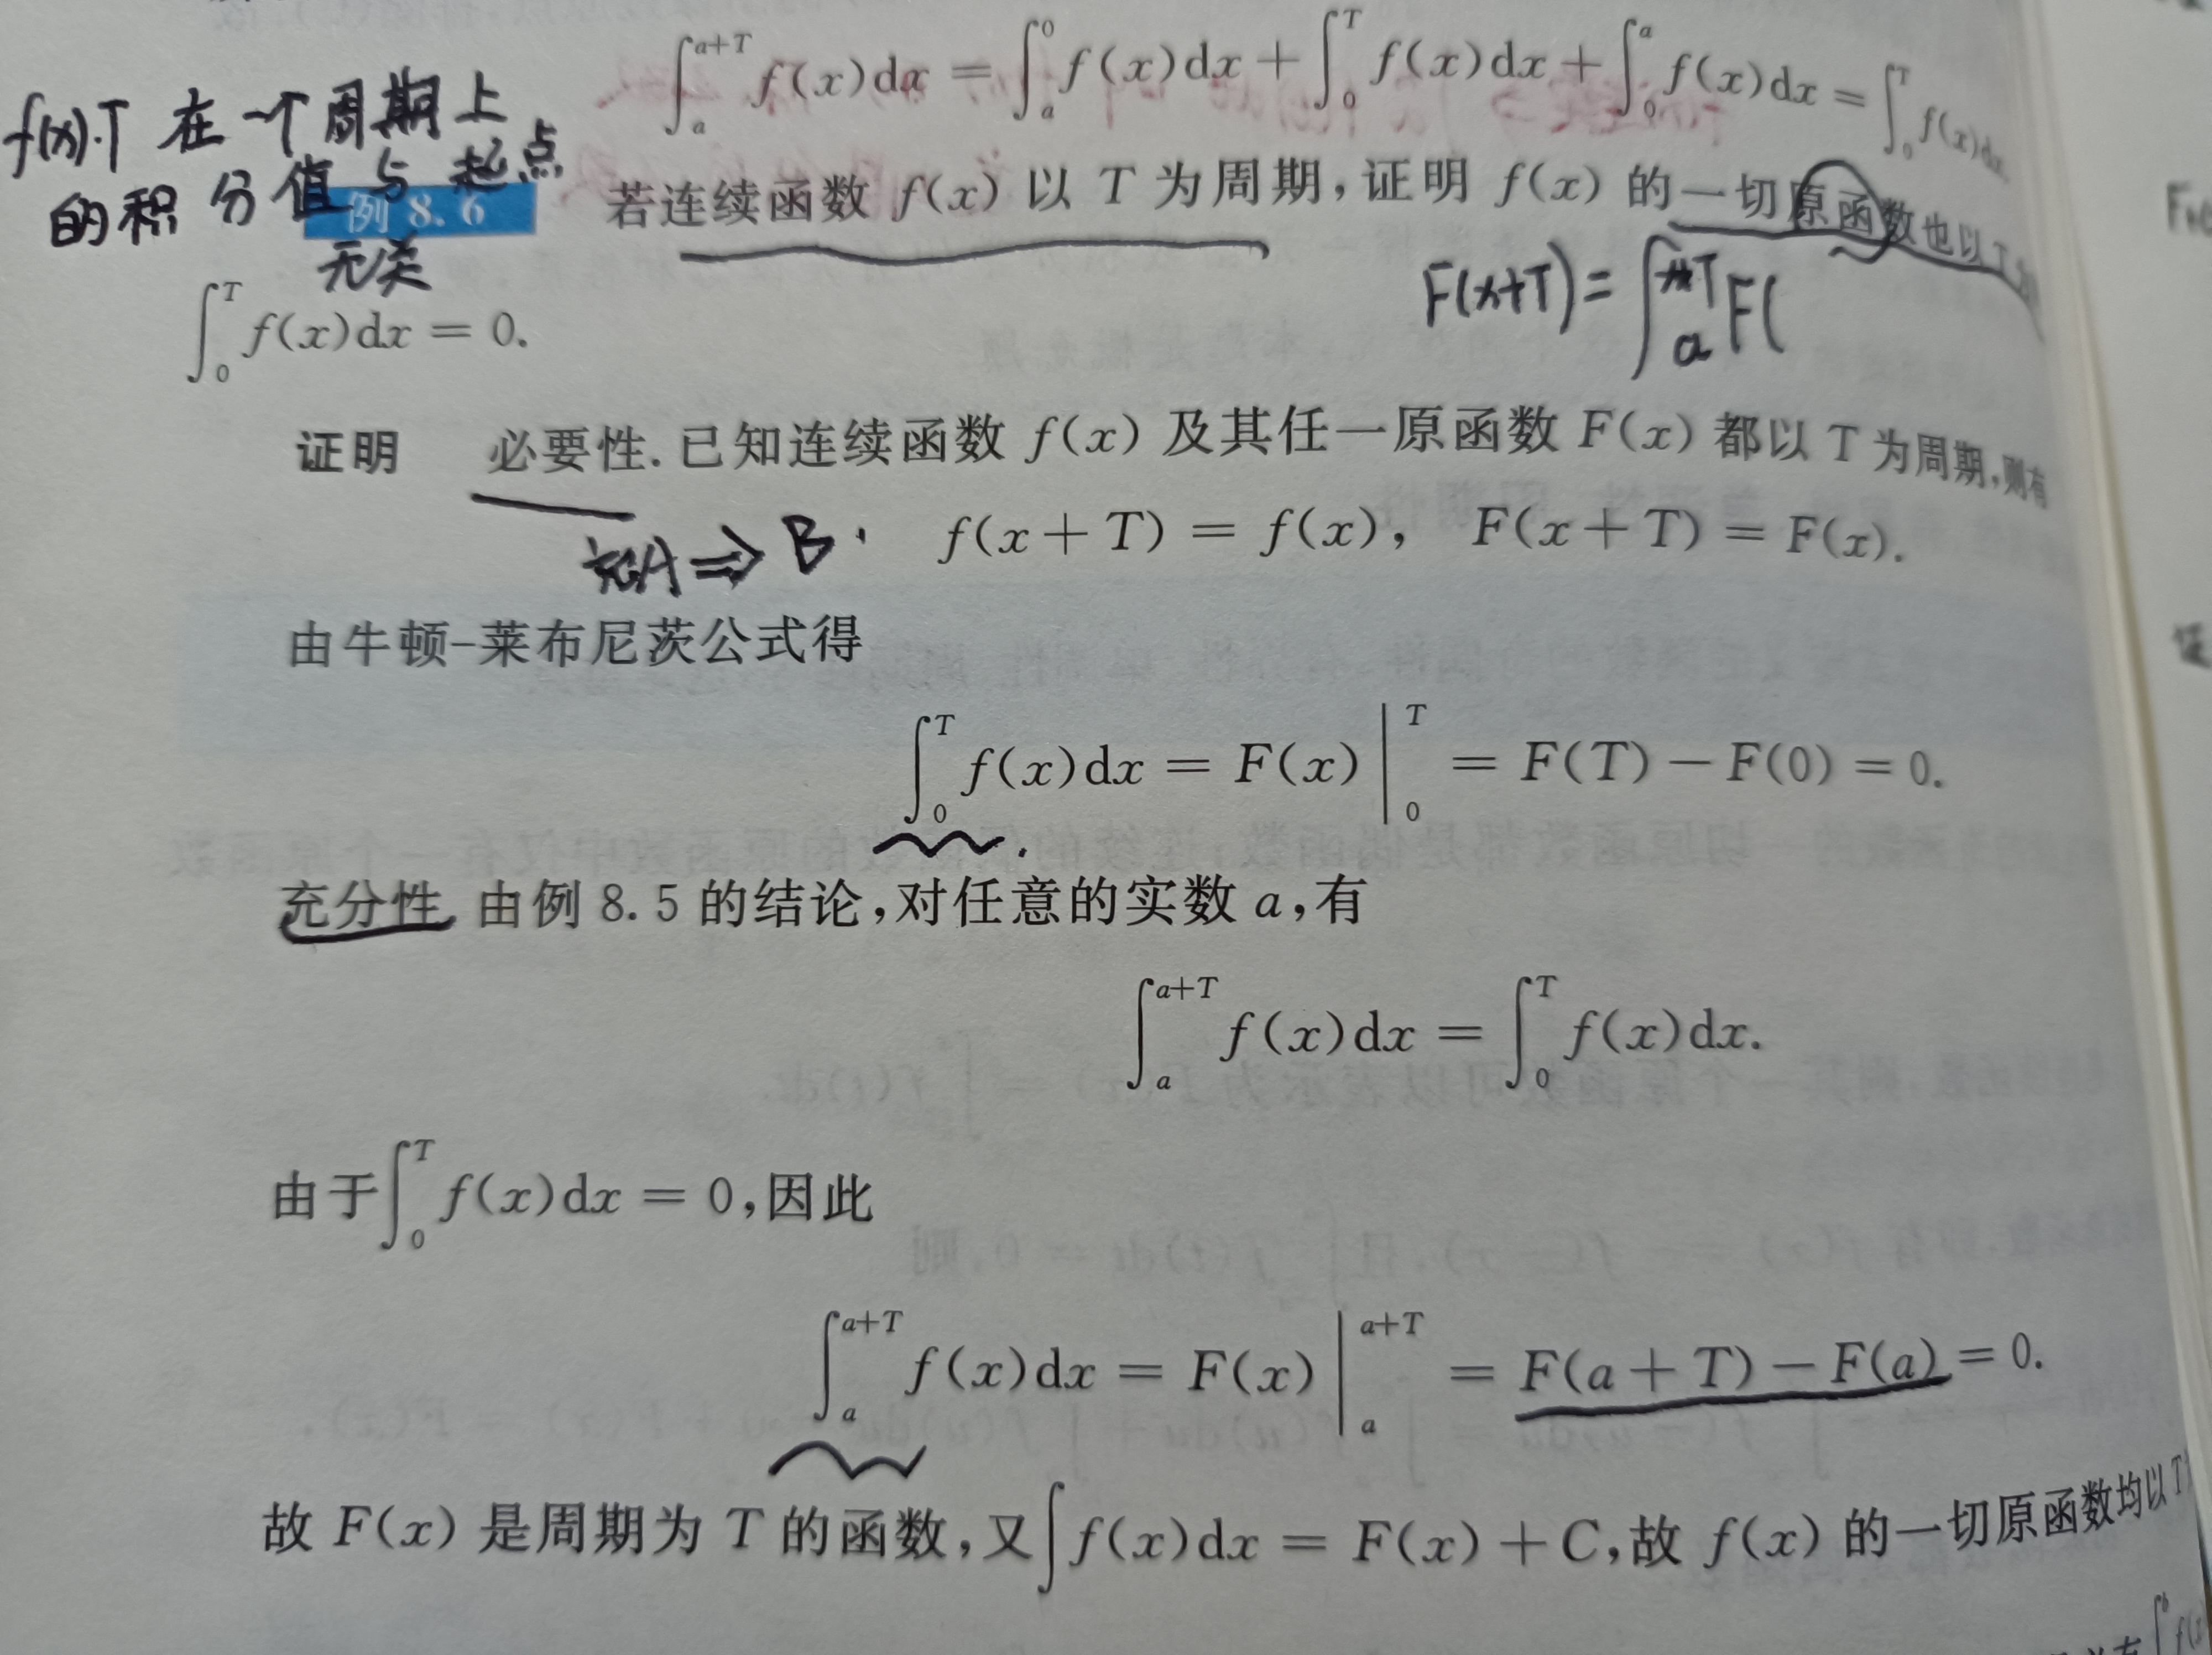 ∫_a^{a+T} f(x)dx = ∫_a^0 f(x)dx + ∫_0^T f(x)dx + ∫_0^a f(x)dx = ∫_0^T f(x)dx
f(x).T 在一个周期上
的积分值与起点
无关
例 8.6 若连续函数 f(x) 以 T 为周期,证明 f(x) 的一切原函数也以 T
F(x+T)= ∫_a^{x+T} F(
∫_0^T f(x)dx = 0.
证明 必要性.已知连续函数 f(x) 及其任一原函数 F(x) 都以 T 为周期,则有
A ⇒ B
f(x+T) = f(x), F(x+T) = F(x).
由牛顿-莱布尼茨公式得
∫_0^T f(x)dx = F(x)|_0^T = F(T) − F(0) = 0.
充分性 由例 8.5 的结论,对任意的实数 a,有
∫_a^{a+T} f(x)dx = ∫_0^T f(x)dx.
由于∫_0^T f(x)dx = 0,因此
∫_a^{a+T} f(x)dx = F(x)|_a^{a+T} = F(a+T) − F(a) = 0.
故 F(x) 是周期为 T 的函数,又∫f(x)dx = F(x) + C,故 f(x) 的一切原函数均以 T